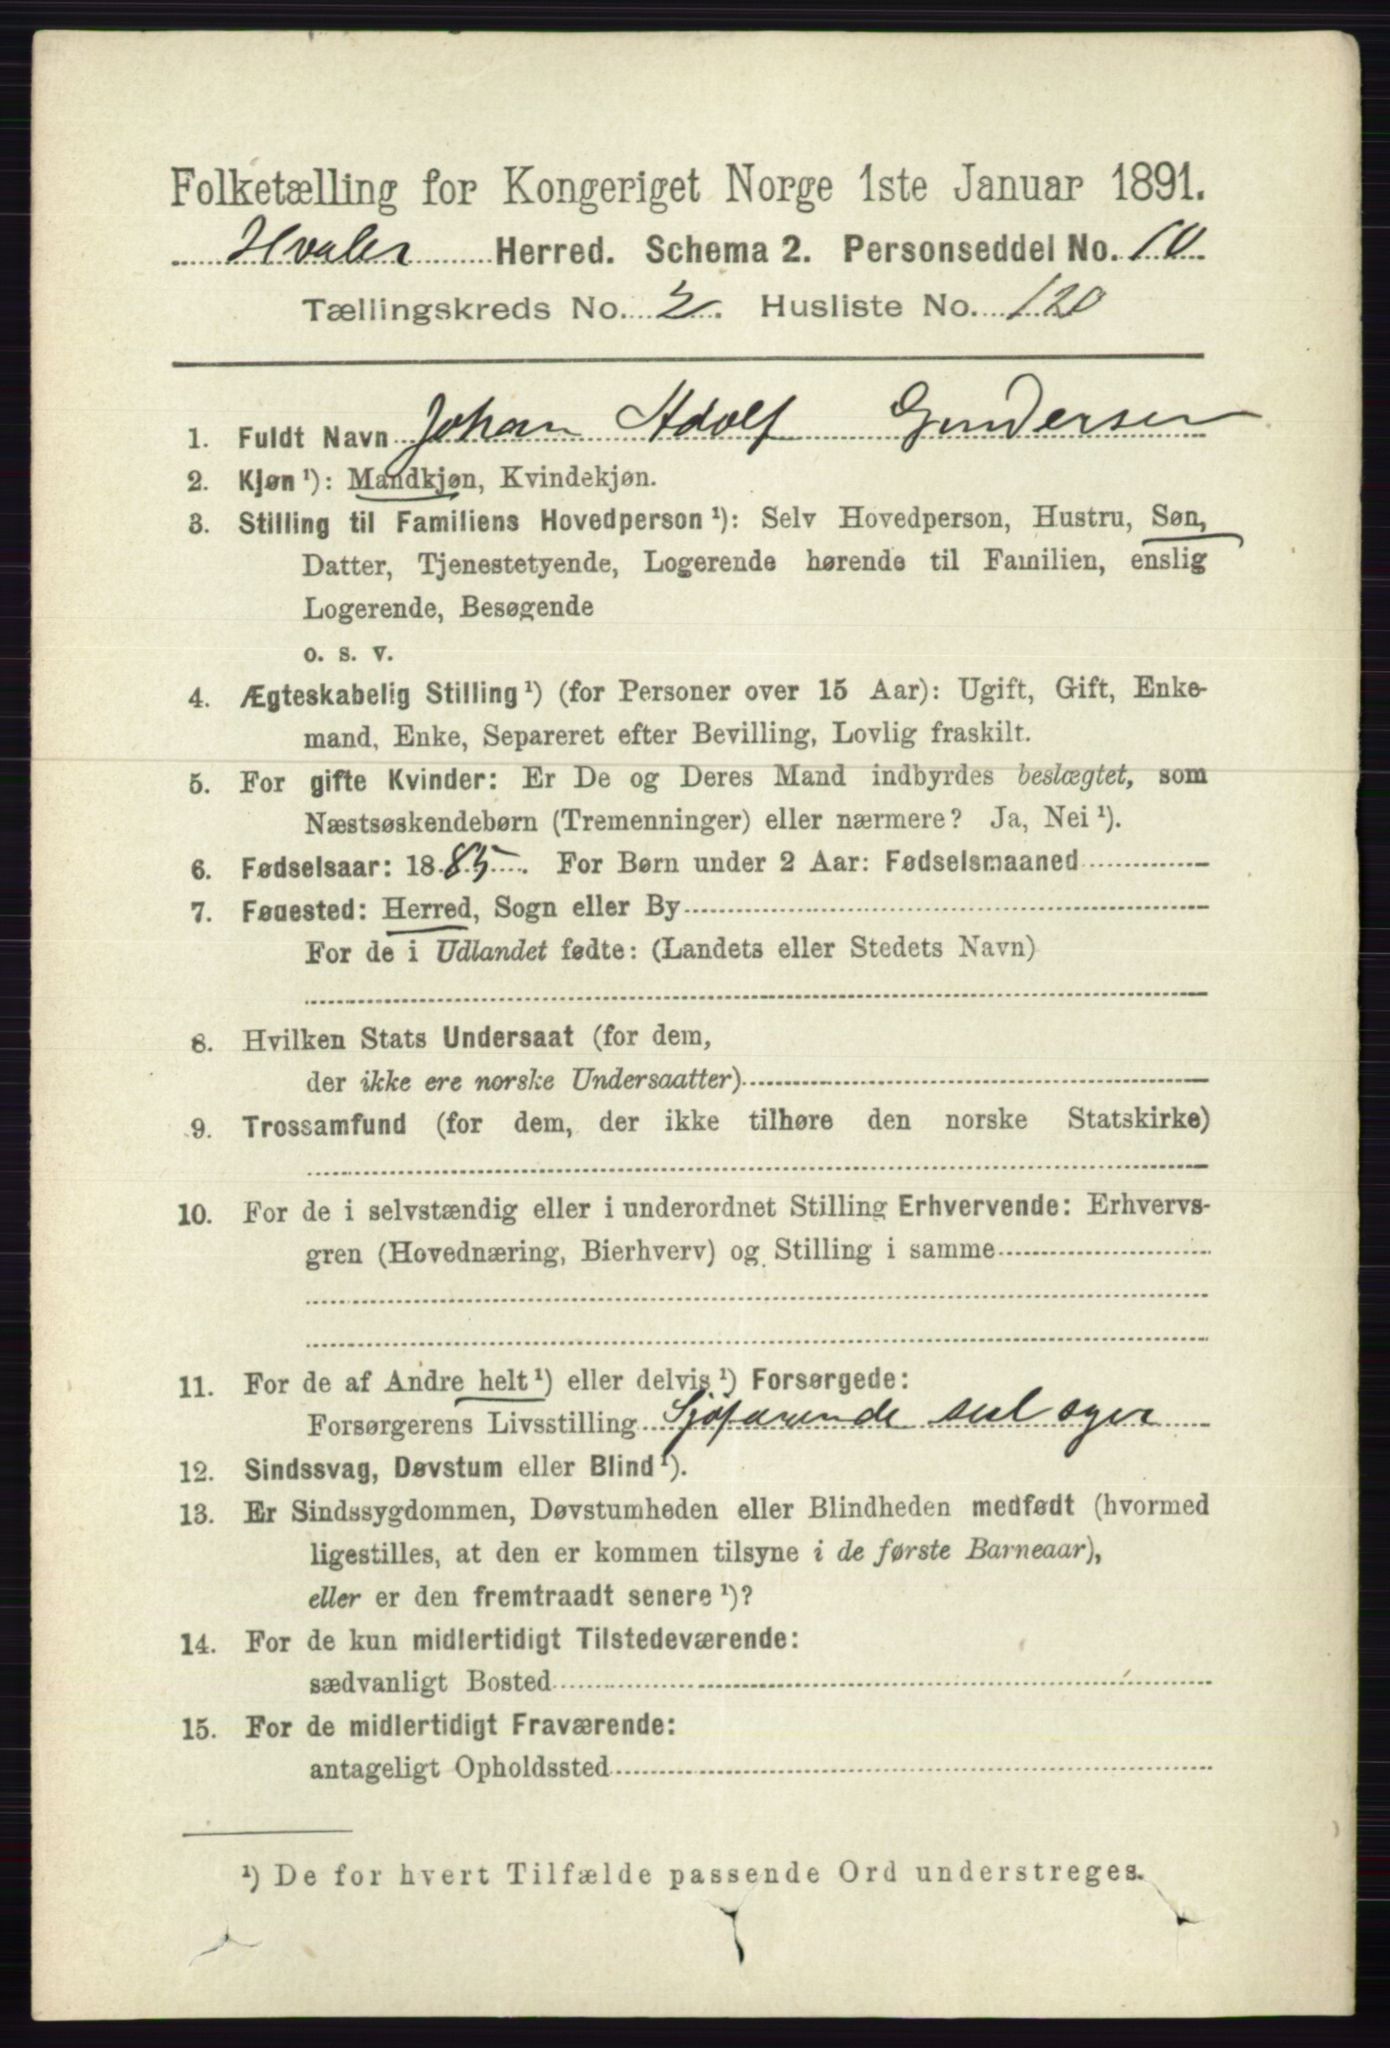 Folketælling for Kongeriget Norge 1ste Januar 1891.
Hvaler Herred. Schema 2. Personseddel No. 10
Tællingskreds No. 2. Husliste No. 120
1. Fuldt Navn Johan Adolf Gundersen
2. Kjøn ¹): Mandkjøn, Kvindekjøn.
3. Stilling til Familiens Hovedperson ¹): Selv Hovedperson, Hustru, Søn,
Datter, Tjenestetyende, Logerende hørende til Familien, enslig
Logerende, Besøgende
o. s. v.
4. Ægteskabelig Stilling ¹) (for Personer over 15 Aar): Ugift, Gift, Enke-
mand, Enke, Separeret efter Bevilling, Lovlig fraskilt.
5. For gifte Kvinder: Er De og Deres Mand indbyrdes beslægtet, som
Næstsøskendebørn (Tremenninger) eller nærmere? Ja, Nei ¹).
6. Fødselsaar: 1885. For Børn under 2 Aar: Fødselsmaaned
7. Fødested: Herred, Sogn eller By
For de i Udlandet fødte: (Landets eller Stedets Navn)
8. Hvilken Stats Undersaat (for dem,
der ikke ere norske Undersaatter)
9. Trossamfund (for dem, der ikke tilhøre den norske Statskirke)
10. For de i selvstændig eller i underordnet Stilling Erhvervende: Erhvervs-
gren (Hovednæring, Bierhverv) og Stilling i samme
11. For de af Andre helt ¹) eller delvis ¹) Forsørgede:
Forsørgerens Livsstilling Sjøfarende
12. Sindssvag, Døvstum eller Blind ¹).
13. Er Sindssygdommen, Døvstumheden eller Blindheden medfødt (hvormed
ligestilles, at den er kommen tilsyne i de første Barneaar),
eller er den fremtraadt senere ¹)?
14. For de kun midlertidigt Tilstedeværende:
sædvanligt Bosted
15. For de midlertidigt Fraværende:
antageligt Opholdssted
¹) De for hvert Tilfælde passende Ord understreges.